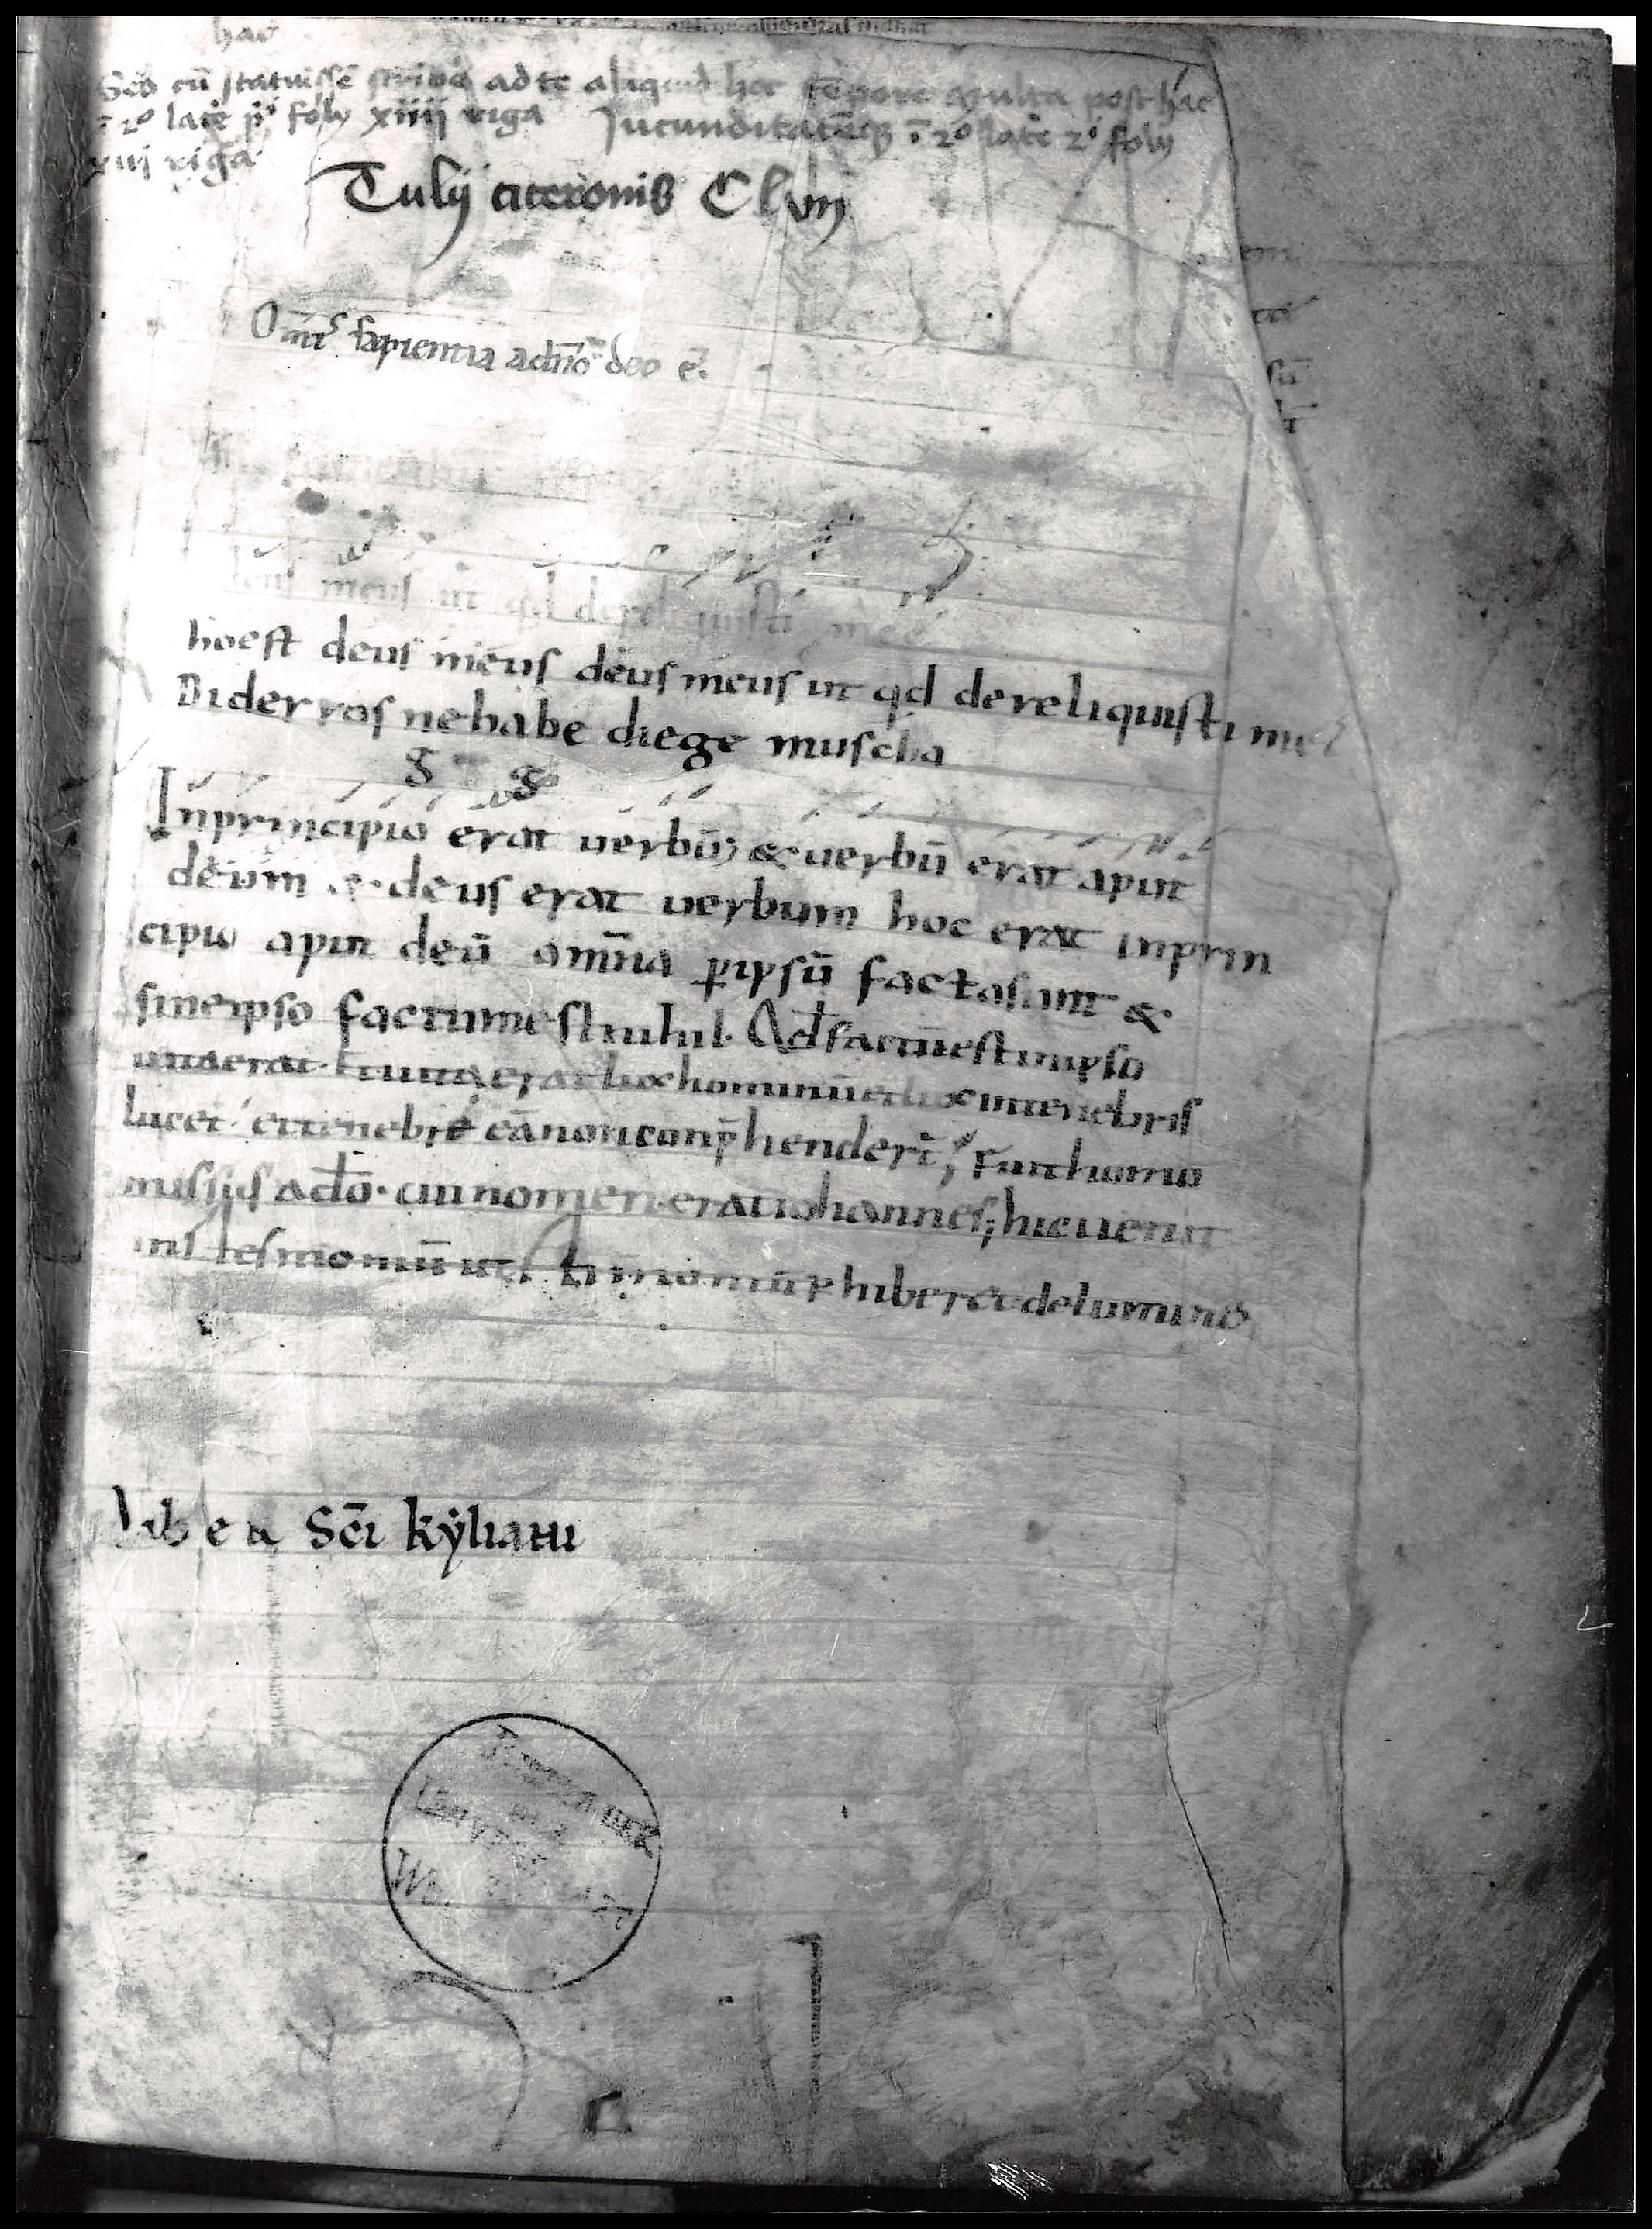 hac
Sed cū statuissē scribe ad te aliquid hoc tēpore multa post hac
ī 2º late pⁱ foly xiiij riga Jucunditatēq; ī 2º late 2ⁱ foly
xvij riga
Tulij ciceronis Clvij
Om̄s sapientia a dn̄o deo ē.
deus meus ut qd dereliquisti me
hoc est deus meus deus meus ut qd dereliquisti me
Diderros ne habe diege muscha
g g
Inprincipio erat uerbū; & uerbū erat aput
deum &. deus erat uerbum hoc erat inprin
cipio aput deū omn̄ia ꝑipsū facta sunt &
sine ipso factum est nihil. Qd factūest inipso
uitaerat. & uita erat lux hominū et lux intenebris
lucet. et tenebrę eā non conp̄hendert̄; Fuit homo
missus a do̅. cui nomen erat iohannes; hic uenit
in testimoniū ut testimoniū ꝑhiberet de lumine
Liber Sc̄i kẏliani